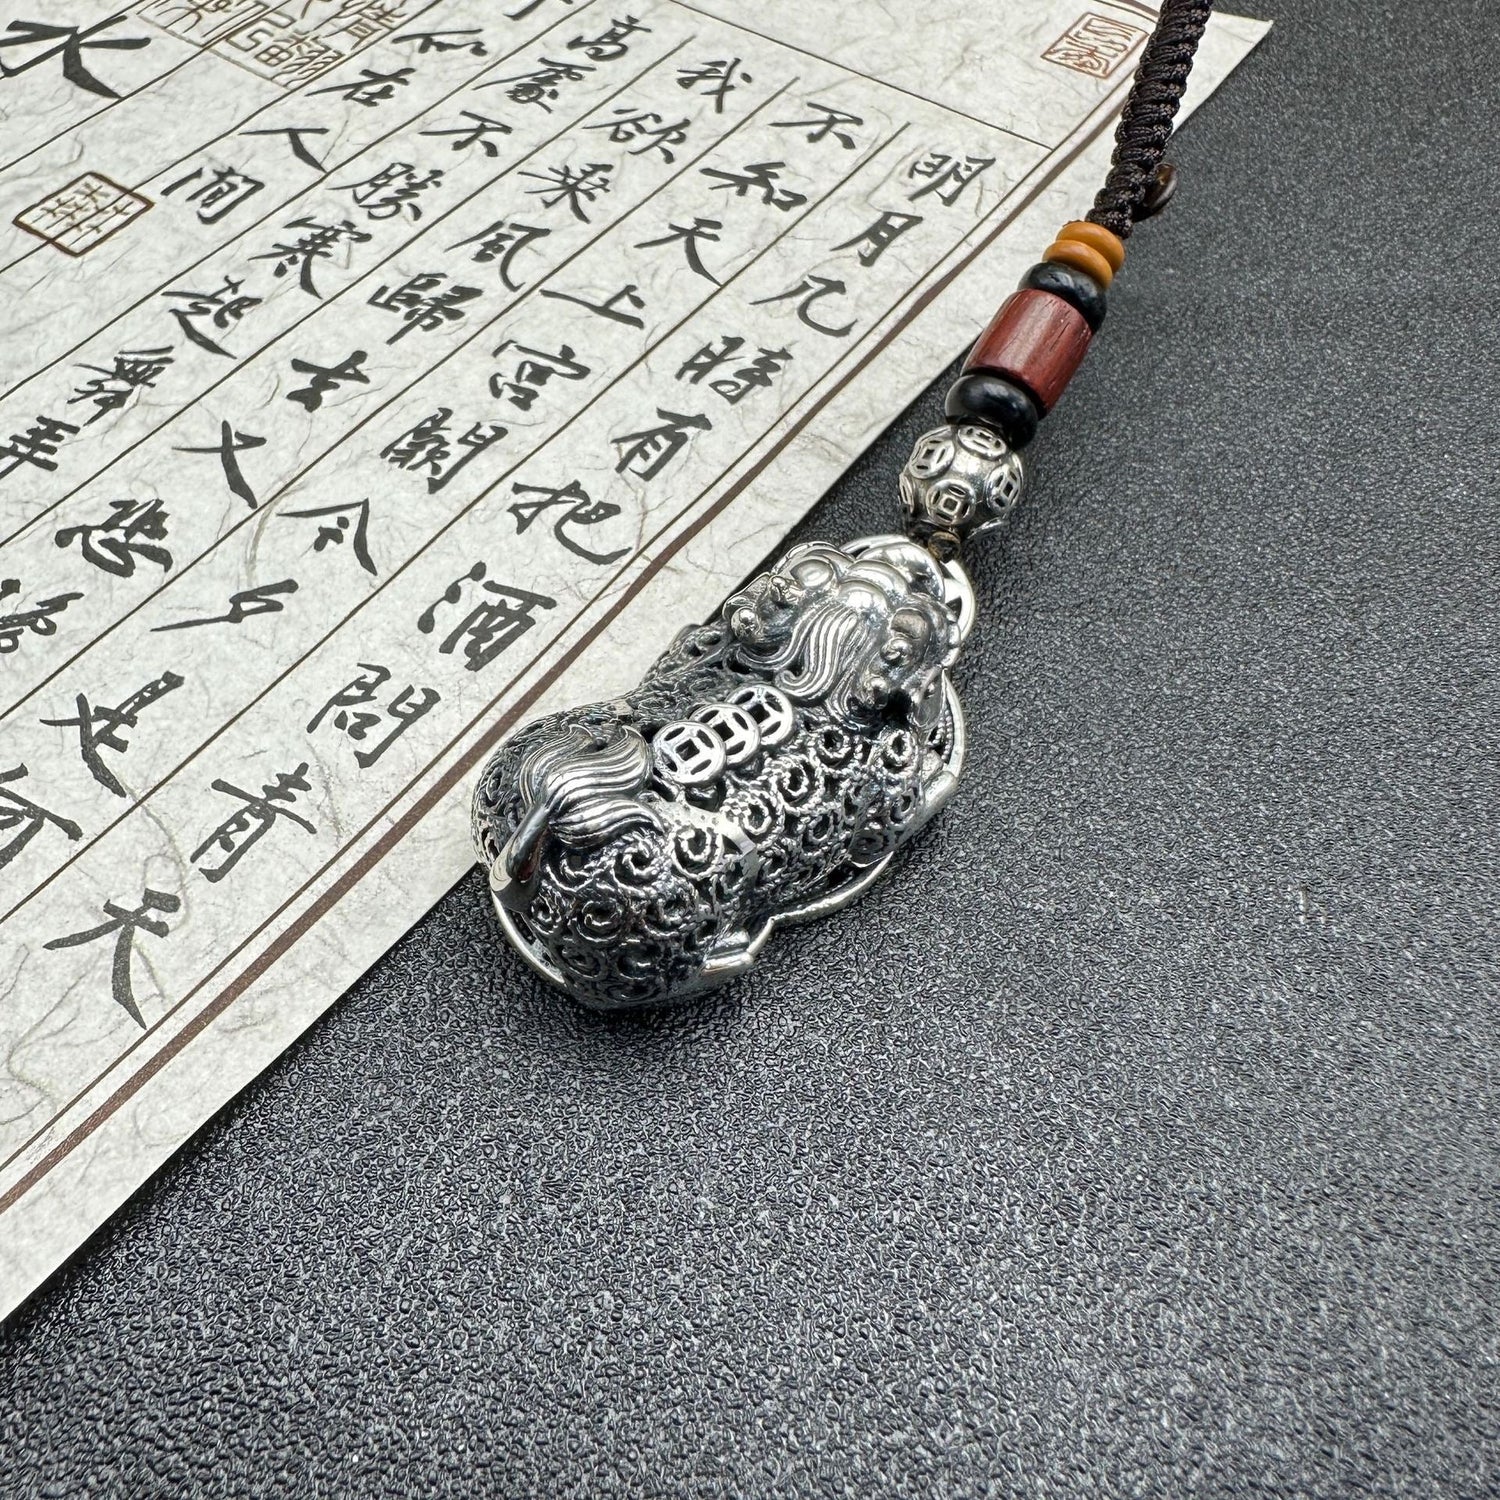 明月几時有把酒問青天
不知天上宮闕今夕是何
我欲乘風歸去又恐
高處不勝寒起舞弄
似在人間
水